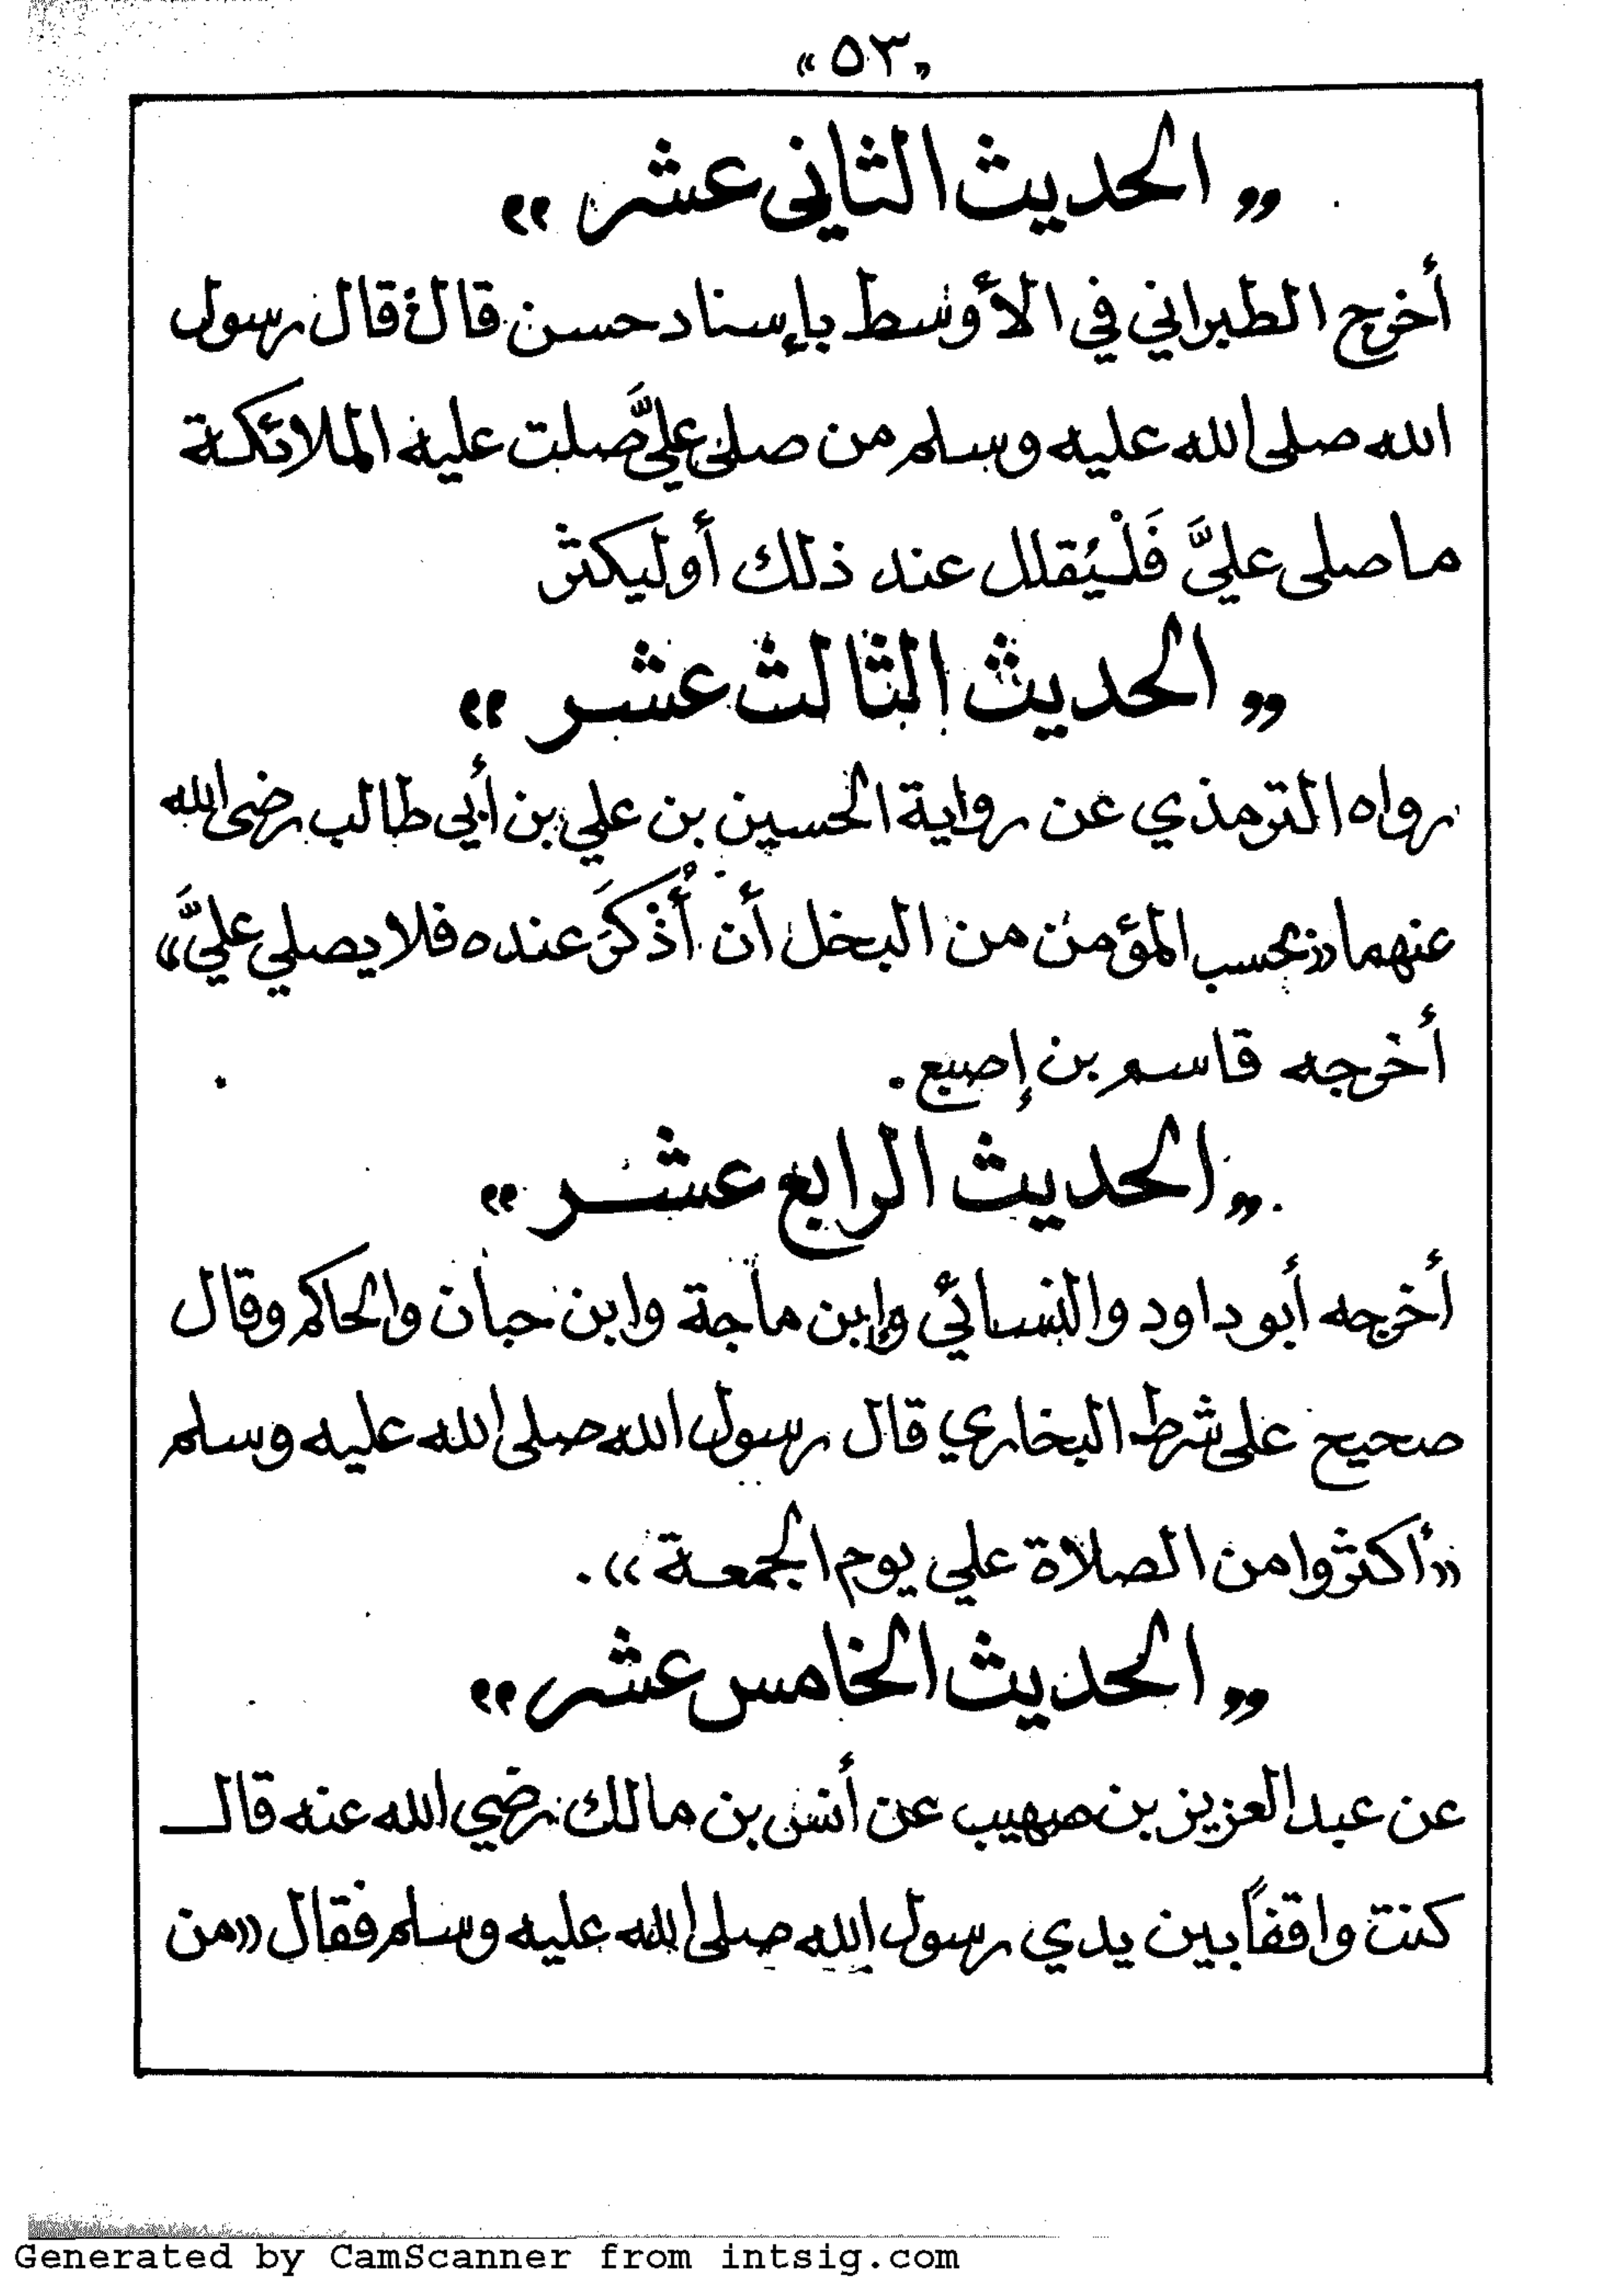 « ٥٣ »
« الحديث الثانى عشر »
أخرج الطبراني في الأوسط بإسناد حسن قال قال رسول
الله صلى الله عليه وسلم من صلى عليَّ صلت عليه الملائكة
ما صلى عليَّ فَلْيُقلل عند ذلك أو ليكثر
« الحديث الثالث عشر »
رواه الترمذي عن رواية الحسين بن علي بن أبي طالب رضى الله
عنهما «بحسب المؤمن من البخل أن أُذْكَرَ عنده فلا يصلي عليَّ»
أخرجه قاسم بن إصبع .
« الحديث الرابع عشر »
أخرجه أبو داود والنسائي وإبن ماجة وابن حبان والحاكم وقال
صحيح على شرط البخاري قال رسول الله صلى الله عليه وسلم
«أكثروا من الصلاة علي يوم الجمعة» .
« الحديث الخامس عشر »
عن عبد العزيز بن صهيب عن أنس بن مالك رضي الله عنه قال
كنت واقفاً بين يدي رسول الله صلى الله عليه وسلم فقال «من
Generated by CamScanner from intsig.com